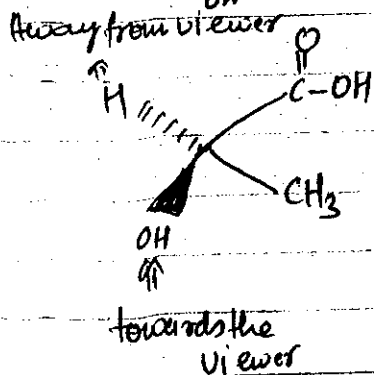 Away from viewer
O
H
C-OH
CH3
OH
towards the
viewer